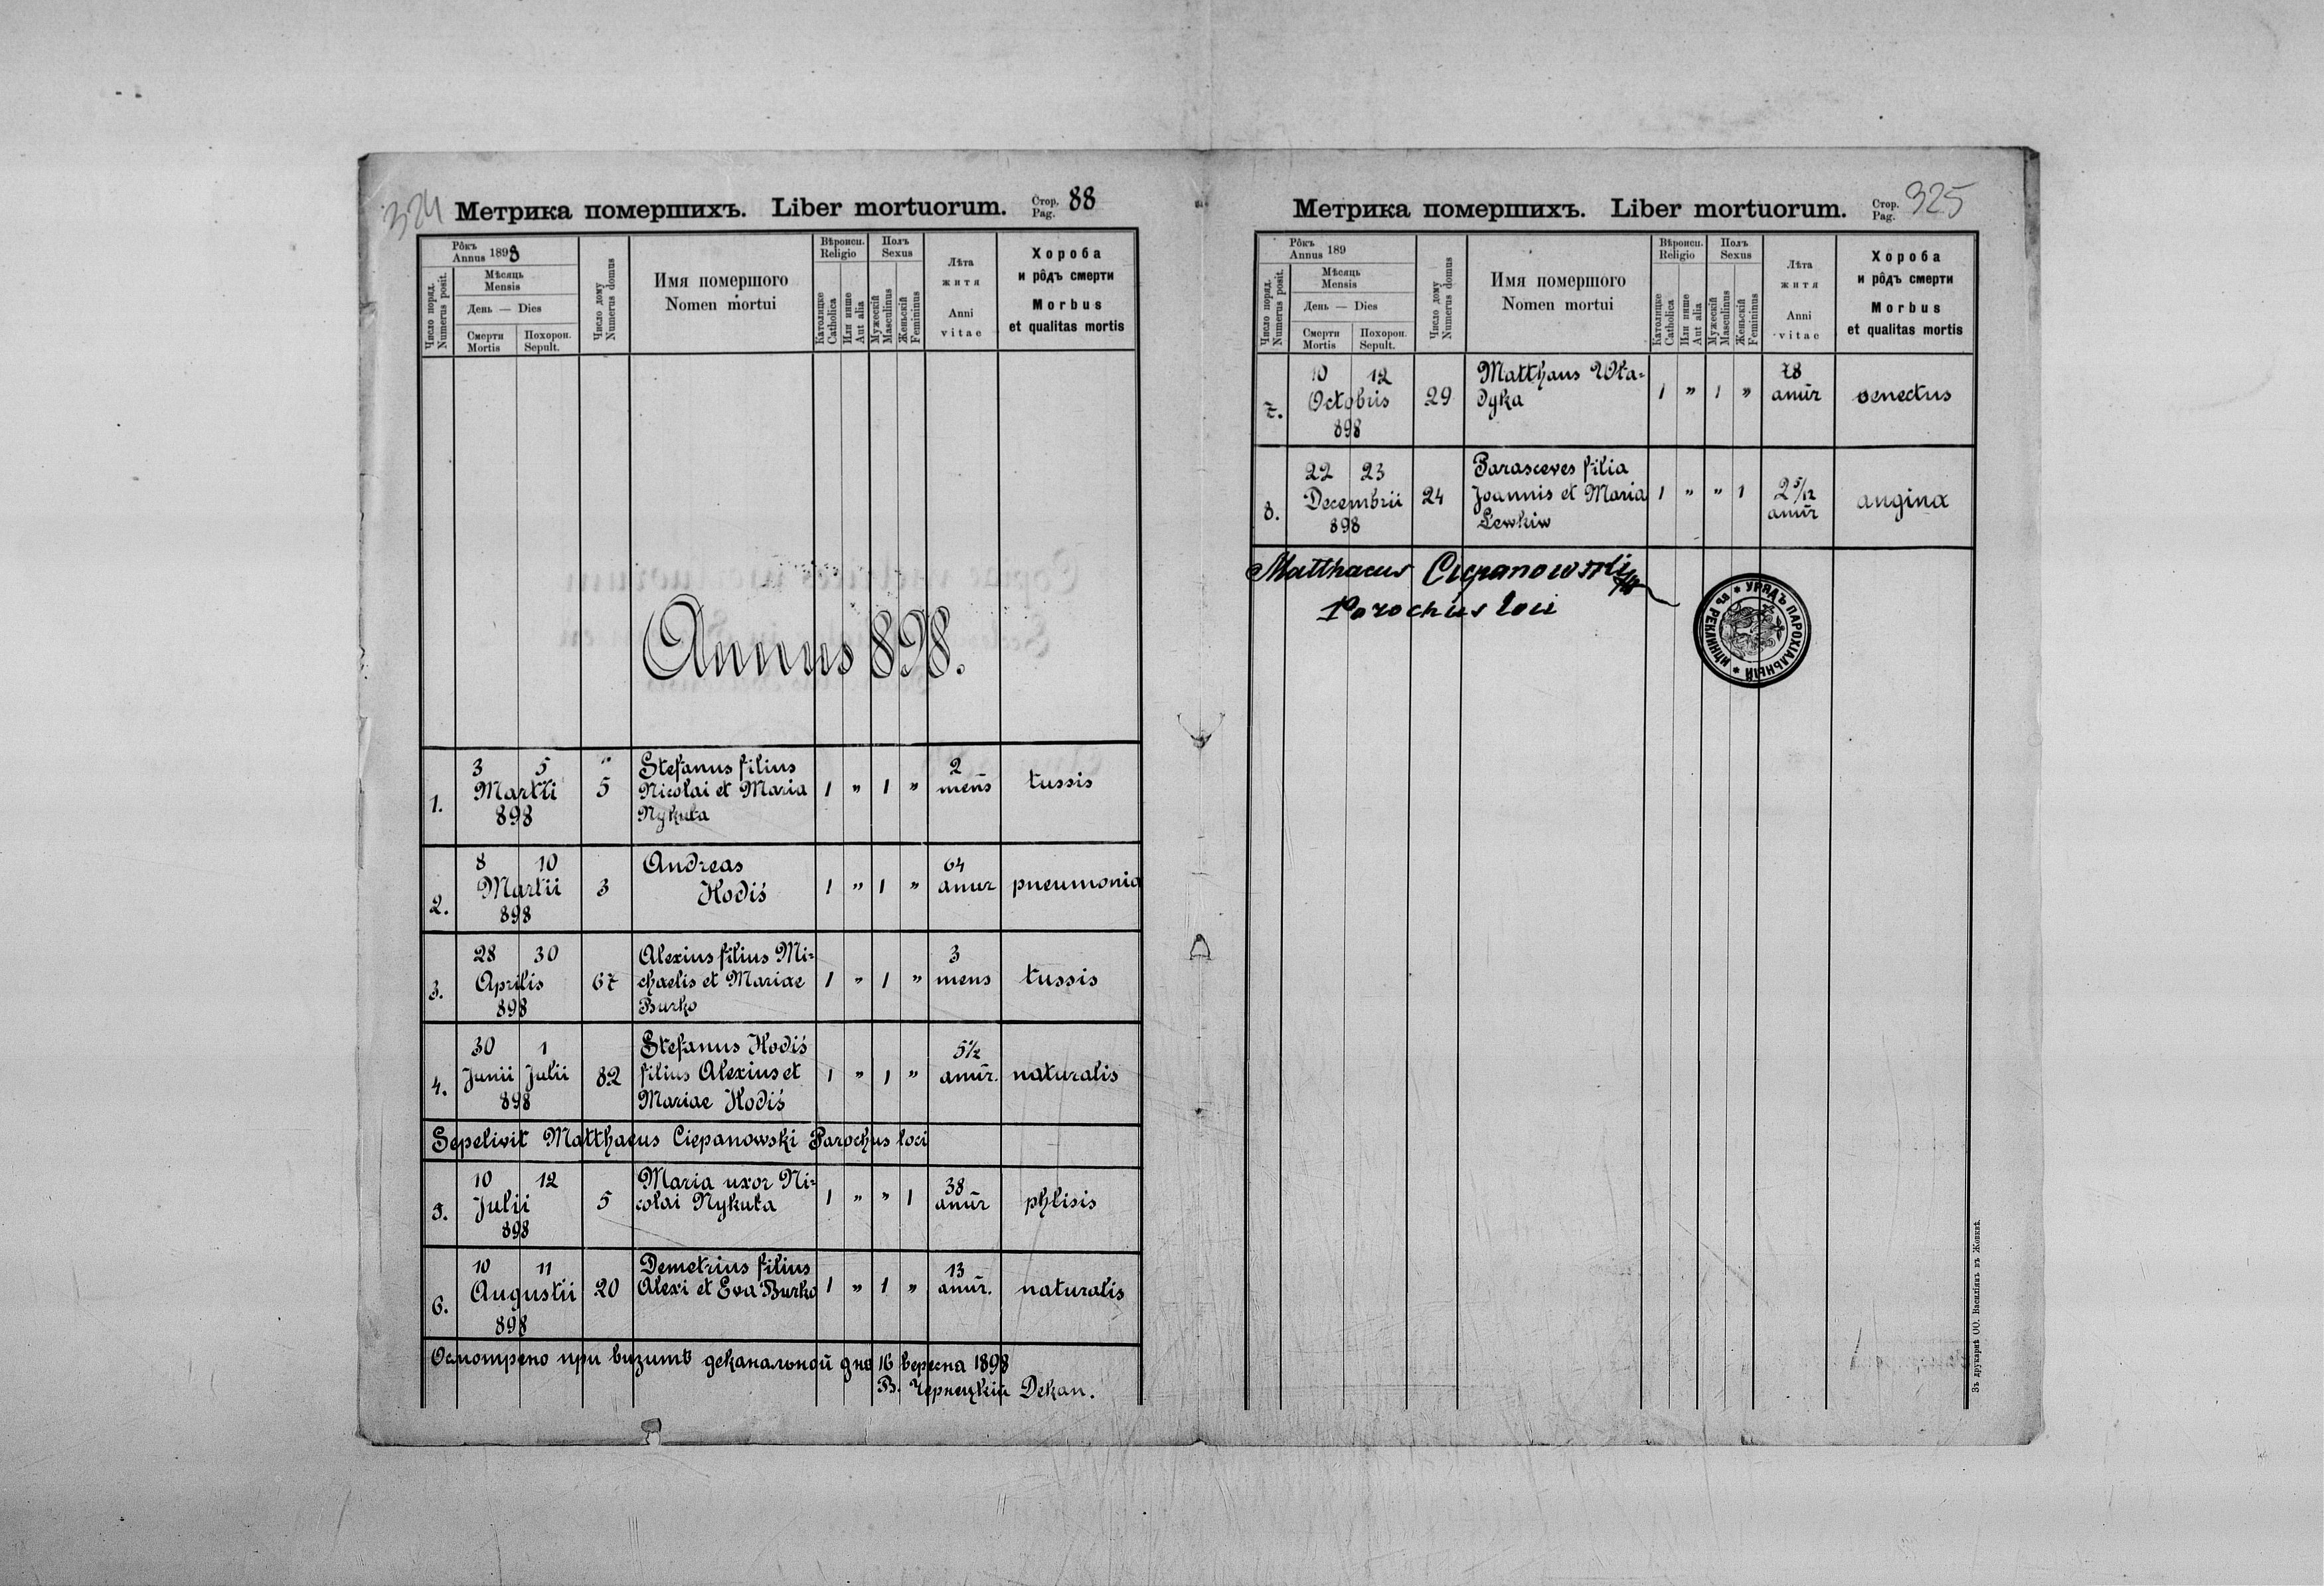 324 Метрика померших​ъ. Liber mortuorum. Стор. Pag. 88
Рôкъ Annus 1898
Число поряд. Numerus posit.
Мѣсяць Mensis
День — Dies
Смерти Mortis
Похорон. Sepult.
Число дому Numerus domus
Имя помершого
Nomen mortui
Вѣроисп. Religio
Католицке Catholica
Или инше Aut alia
Полъ Sexus
Мужескій Masculinus
Женьскій Femininus
Лѣта
житя
Anni
vitae
Хороба
и рôдъ смерти
Morbus
et qualitas mortis
Annus 898.
1. 3 5 Martii 898 " 5
Stefanus filius
Nicolai et Maria
Nykuta
1 " 1 " 2 mens tussis
2. 8 10 Martii 898 3
Andreas
Hodiś
1 " 1 " 64 annor pneumonia
3. 28 30 Aprilis 898 67
Alexius filius Mi=
chaelis et Mariae
Burko
1 " 1 " 3 mens tussis
4. 30 Junii 1 Julii 898 82
Stefanus Hodiś
filius Alexius et
Mariae Hodiś
1 " 1 " 5½ anūr. naturalis
Sepelivit Matthaeus Ciepanowski Parochus loci
5. 10 12 Julii 898 5
Maria uxor Ni=
colai Nykuta
1 " " 1 38 anūr phtisis
6. 10 11 Augustii 898 20
Demetrius filius
Alexi et Eva Burko
1 " 1 " 13 anūr. naturalis
Осмотрено при визитѣ деканальнôй дня 16 вересна 1898
В. Чернецкій Декан.
Метрика помершихъ. Liber mortuorum. Стор. Pag. 325
Рôкъ Annus 189
Число поряд. Numerus posit.
Мѣсяць Mensis
День — Dies
Смерти Mortis
Похорон. Sepult.
Число дому Numerus domus
Имя помершого
Nomen mortui
Вѣроисп. Religio
Католицке Catholica
Или инше Aut alia
Полъ Sexus
Мужескій Masculinus
Женьскій Femininus
Лѣта
житя
Anni
vitae
Хороба
и рôдъ смерти
Morbus
et qualitas mortis
7. 10 12 Octobris 898 29
Matthaus Wła=
dyka
1 " 1 " 78 anūr senectus
8. 22 23 Decembrii 898 24
Parasceves filia
Joannis et Maria
Lewkiw
1 " " 1 2 5/12 anūr angina
Matthaeus Ciepanowski
Parochus loci
УРЯДЪ ПАРОХІАЛЬНЫЙ
Зъ друкарнѣ ОО. Василіянъ въ Жовквѣ.